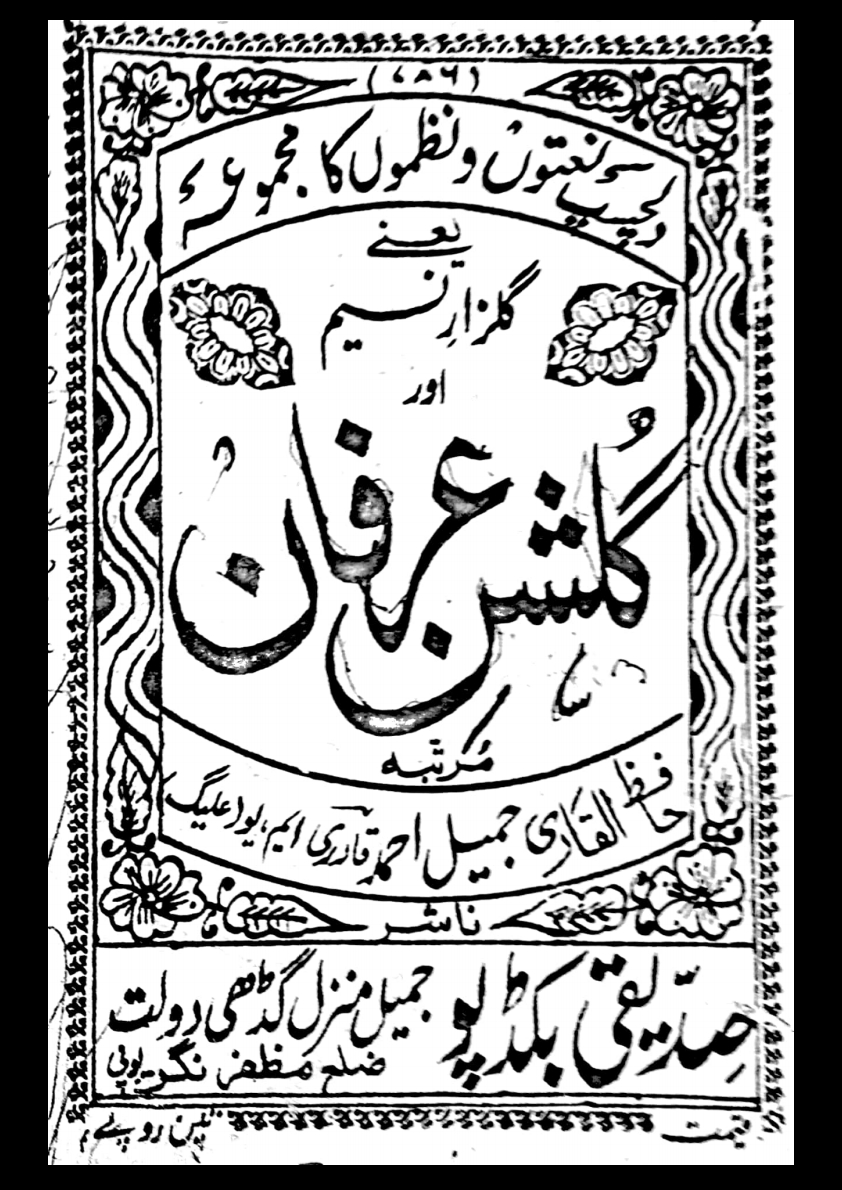 (۷۸۶)
دلچسپ نعتوں و نظموں کا مجموعہ
یعنی
گلزارِ نسیم
اور
گلشن عرفان
مُرتبہ
حافظ القاری جمیل احمد قادری ایم، یو، علیگ
ناشر
صدّیقی بکڈپو جمیل منزل گڈھی دولت
ضلع مظفر نگر۔ یوپی
قیمت تین روپے